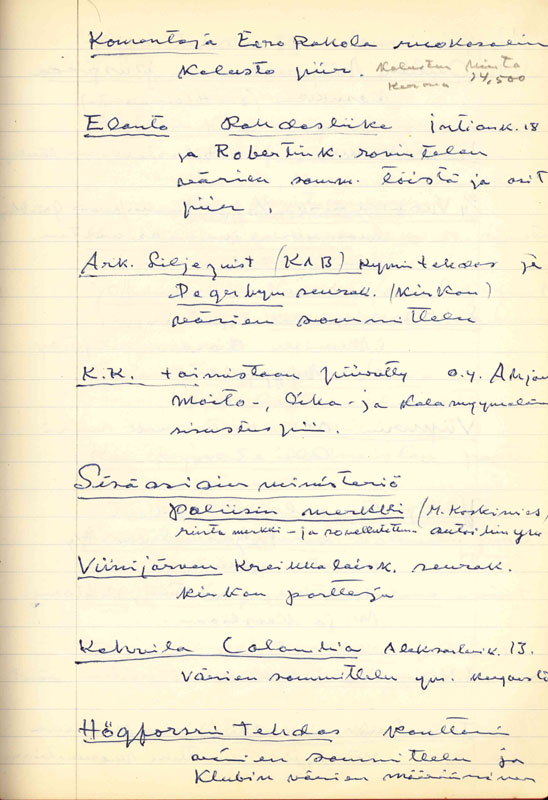 Komentaja Eero Rahola ruokasalin
kalusto piir. Kaluston hinta
24,500
Elanto Rahdasliike Intiank. 18
ja Robertink. rovintelan
värien somm. töistä ja osit
piir.
Ark. Liljeqvist (KAB) Kymintehdas ja
Degerbyn seurak. (kirkon)
värien sommittelu
K.K. toimistoon piirretty o.y. Arijan
Maito-, liha- ja kalamyymälän
sisustus piir.
Sisäasiain ministeriö
poliisin merkki (M. Koskimies)
rinta merkki - ja sovellutettuna autoihin ym
Viinijärven Kreikkalaisk. seurak.
kirkon portteja
Kahvila Colombia Aleksanterik. 13.
Värien sommittelu ym.
Högforsin tehdas konttorin
värien sommittelu ja
Klubin värien määrääminen